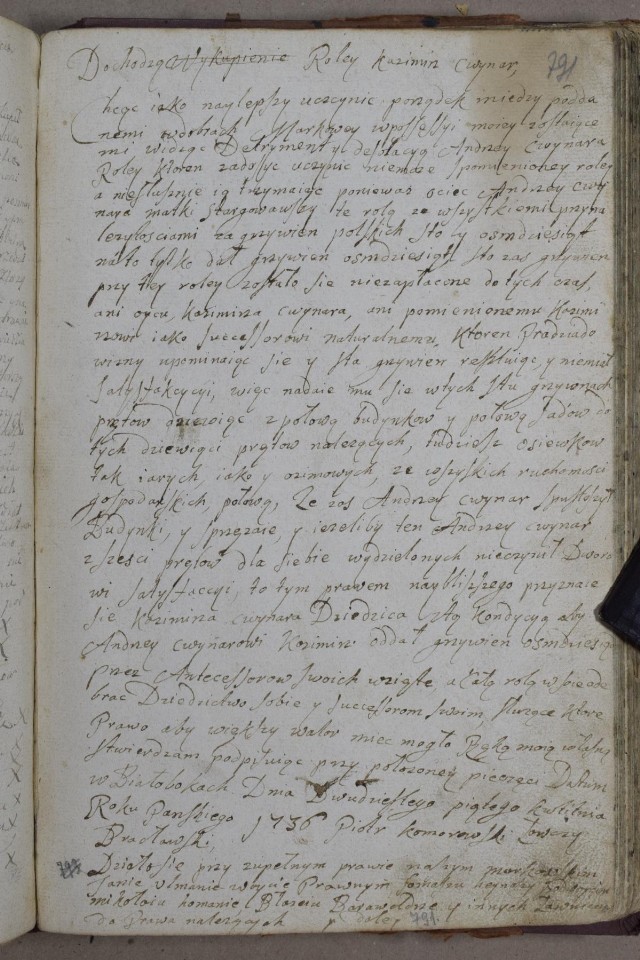 Dochodzą Wykupienie Roley Kazimirz Cwynar, 791
hcąc iako naylepszy uczynic porządek między podda
nemi w dobrach Markowey w possessyi moiey zostaiące
mi widząc Detrymenty desolacyą Andrzey Cwynara
Roley ktoren zadosyc uczynic niemoze spomienioney roley
a niesłusznie ią trzymaiąc poniewaz ociec Andrzey Cwy
nara matki te rolą ze wszystkiemi przyna
lezytosciami za grzywien polskich sto y osmdziesiąt
na to tylko dał grzywien osmdziesiąt sto zas grzywien
przy tey roley zostało sie niezapłacone do tych czas,
ani oycu Kazimirza Cwynara, ani pomienionemu Kazimi
rzowi iako successorowi naturalnemu, Ktoren Pradziado
wizny upominaiąc sie y sta grzywien resztuiąc y niemiał
satysfakcyi, więc nadaie mu sie w tych stu grzywnach
prętow dziewięc z połową budynkow y połową sadow do
tych dziewięci prętow nalezących, tudziesz osiewkow
tak iarych, iako y ozimowych, ze wszyskich ruchomosci
gospodarskich, połową, Ze zas Andrzey Cwynar spustoszył
Budynki, y sprzęzaie, y iezeliby ten Andrzey Cwynar
z szesci prętow dla siebie wydzielonych nieczynił Dworo
wi satysfaccyi, to tym prawem naybliszszego przyznaie
sie Kazimirza Cwynara Dziedzica z tą kondycyą aby
Andrzey Cwynarowi Kazimirz oddał grzywien osmdziesiąt
przez Antecessorow swoich wzięte a całą rolą w posiede
brac Dziedzictwo sobie y successorom swoim, słuzące ktore
Prawo aby większy walor miec mogło Ręką moią własną
stwierdzam podpisuiąc przy połozoney pieczęci Datum
w Białobokach Dnia Dwudziestego piątego kwietnia
Roku Panskiego 1736 Piotr Komorowski Łowczy
Bracławski,
Działo sie przy zupełnym prawie naszym markowskim
Janie Ulmanie woycie Prawnym Tomaszu
mikołaiu homanie Błazeiu y innych
do Prawa nalezących y daley 791.